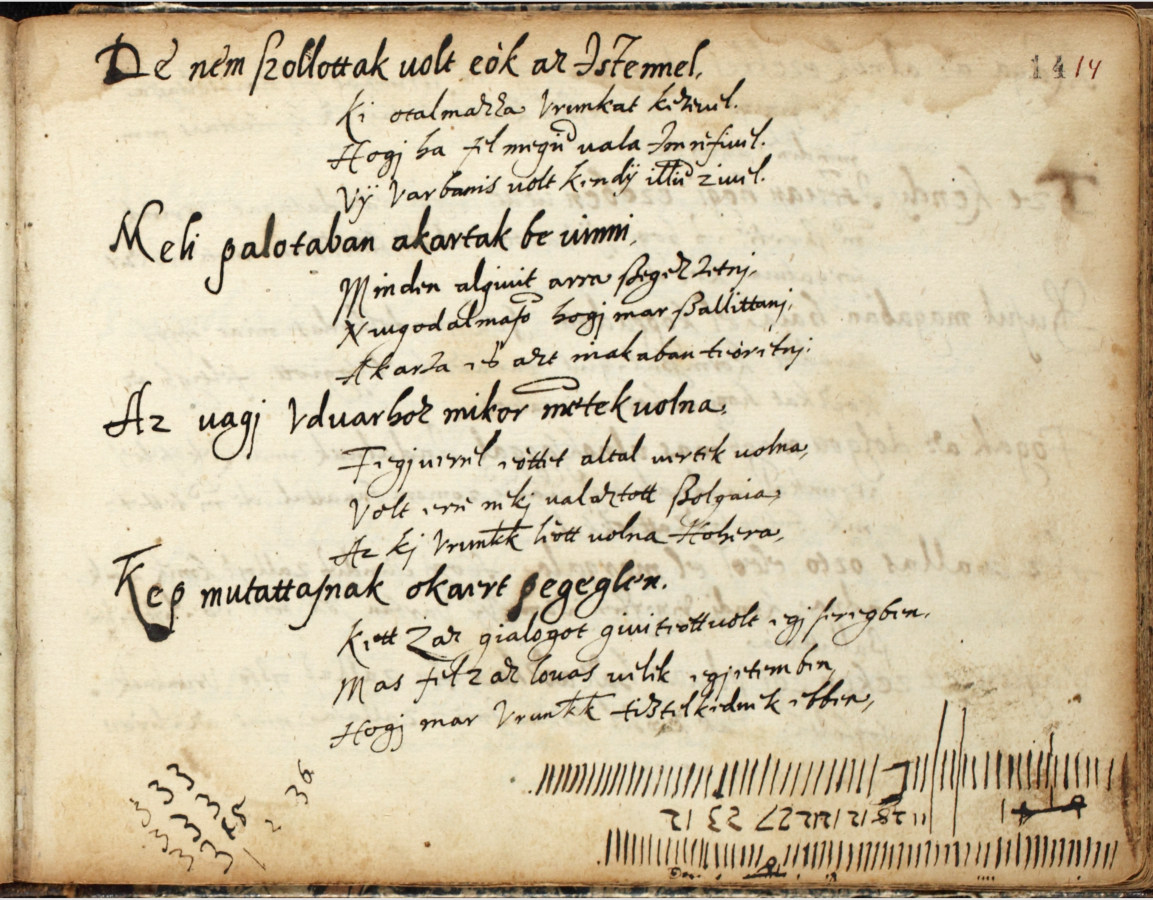 De nem szollottak volt eök az Istennel,
14 14
Ki otalmazza Vrunkat kezeuel.
Hogj ha fel megien vala Jnnefiuel.
Vÿ Varbanis volt kendÿ illien ziuel.
Meli palotaban akartak be uinni,
Minden algiuit arra szegeztetnj,
Niugodalmaso hogj mar szallittanj,
Akarta es azt makaban teöritnj:
Az vagj Vduarhoz mikor mentek volna,
Fegjuerrel eöttet altal vertek volna,
Volt erre nekj valaztott szolgaia,
Az kj Vrunkk leött volna Hohera,
Kep mutattasnak okaert segeglen.
Kett Zaz gialogot giuiteott volt egj seregben,
Mas fel zaz louas velek egjetemben,
Hogj mar Vrunkk tisztelkednek ebben,
36